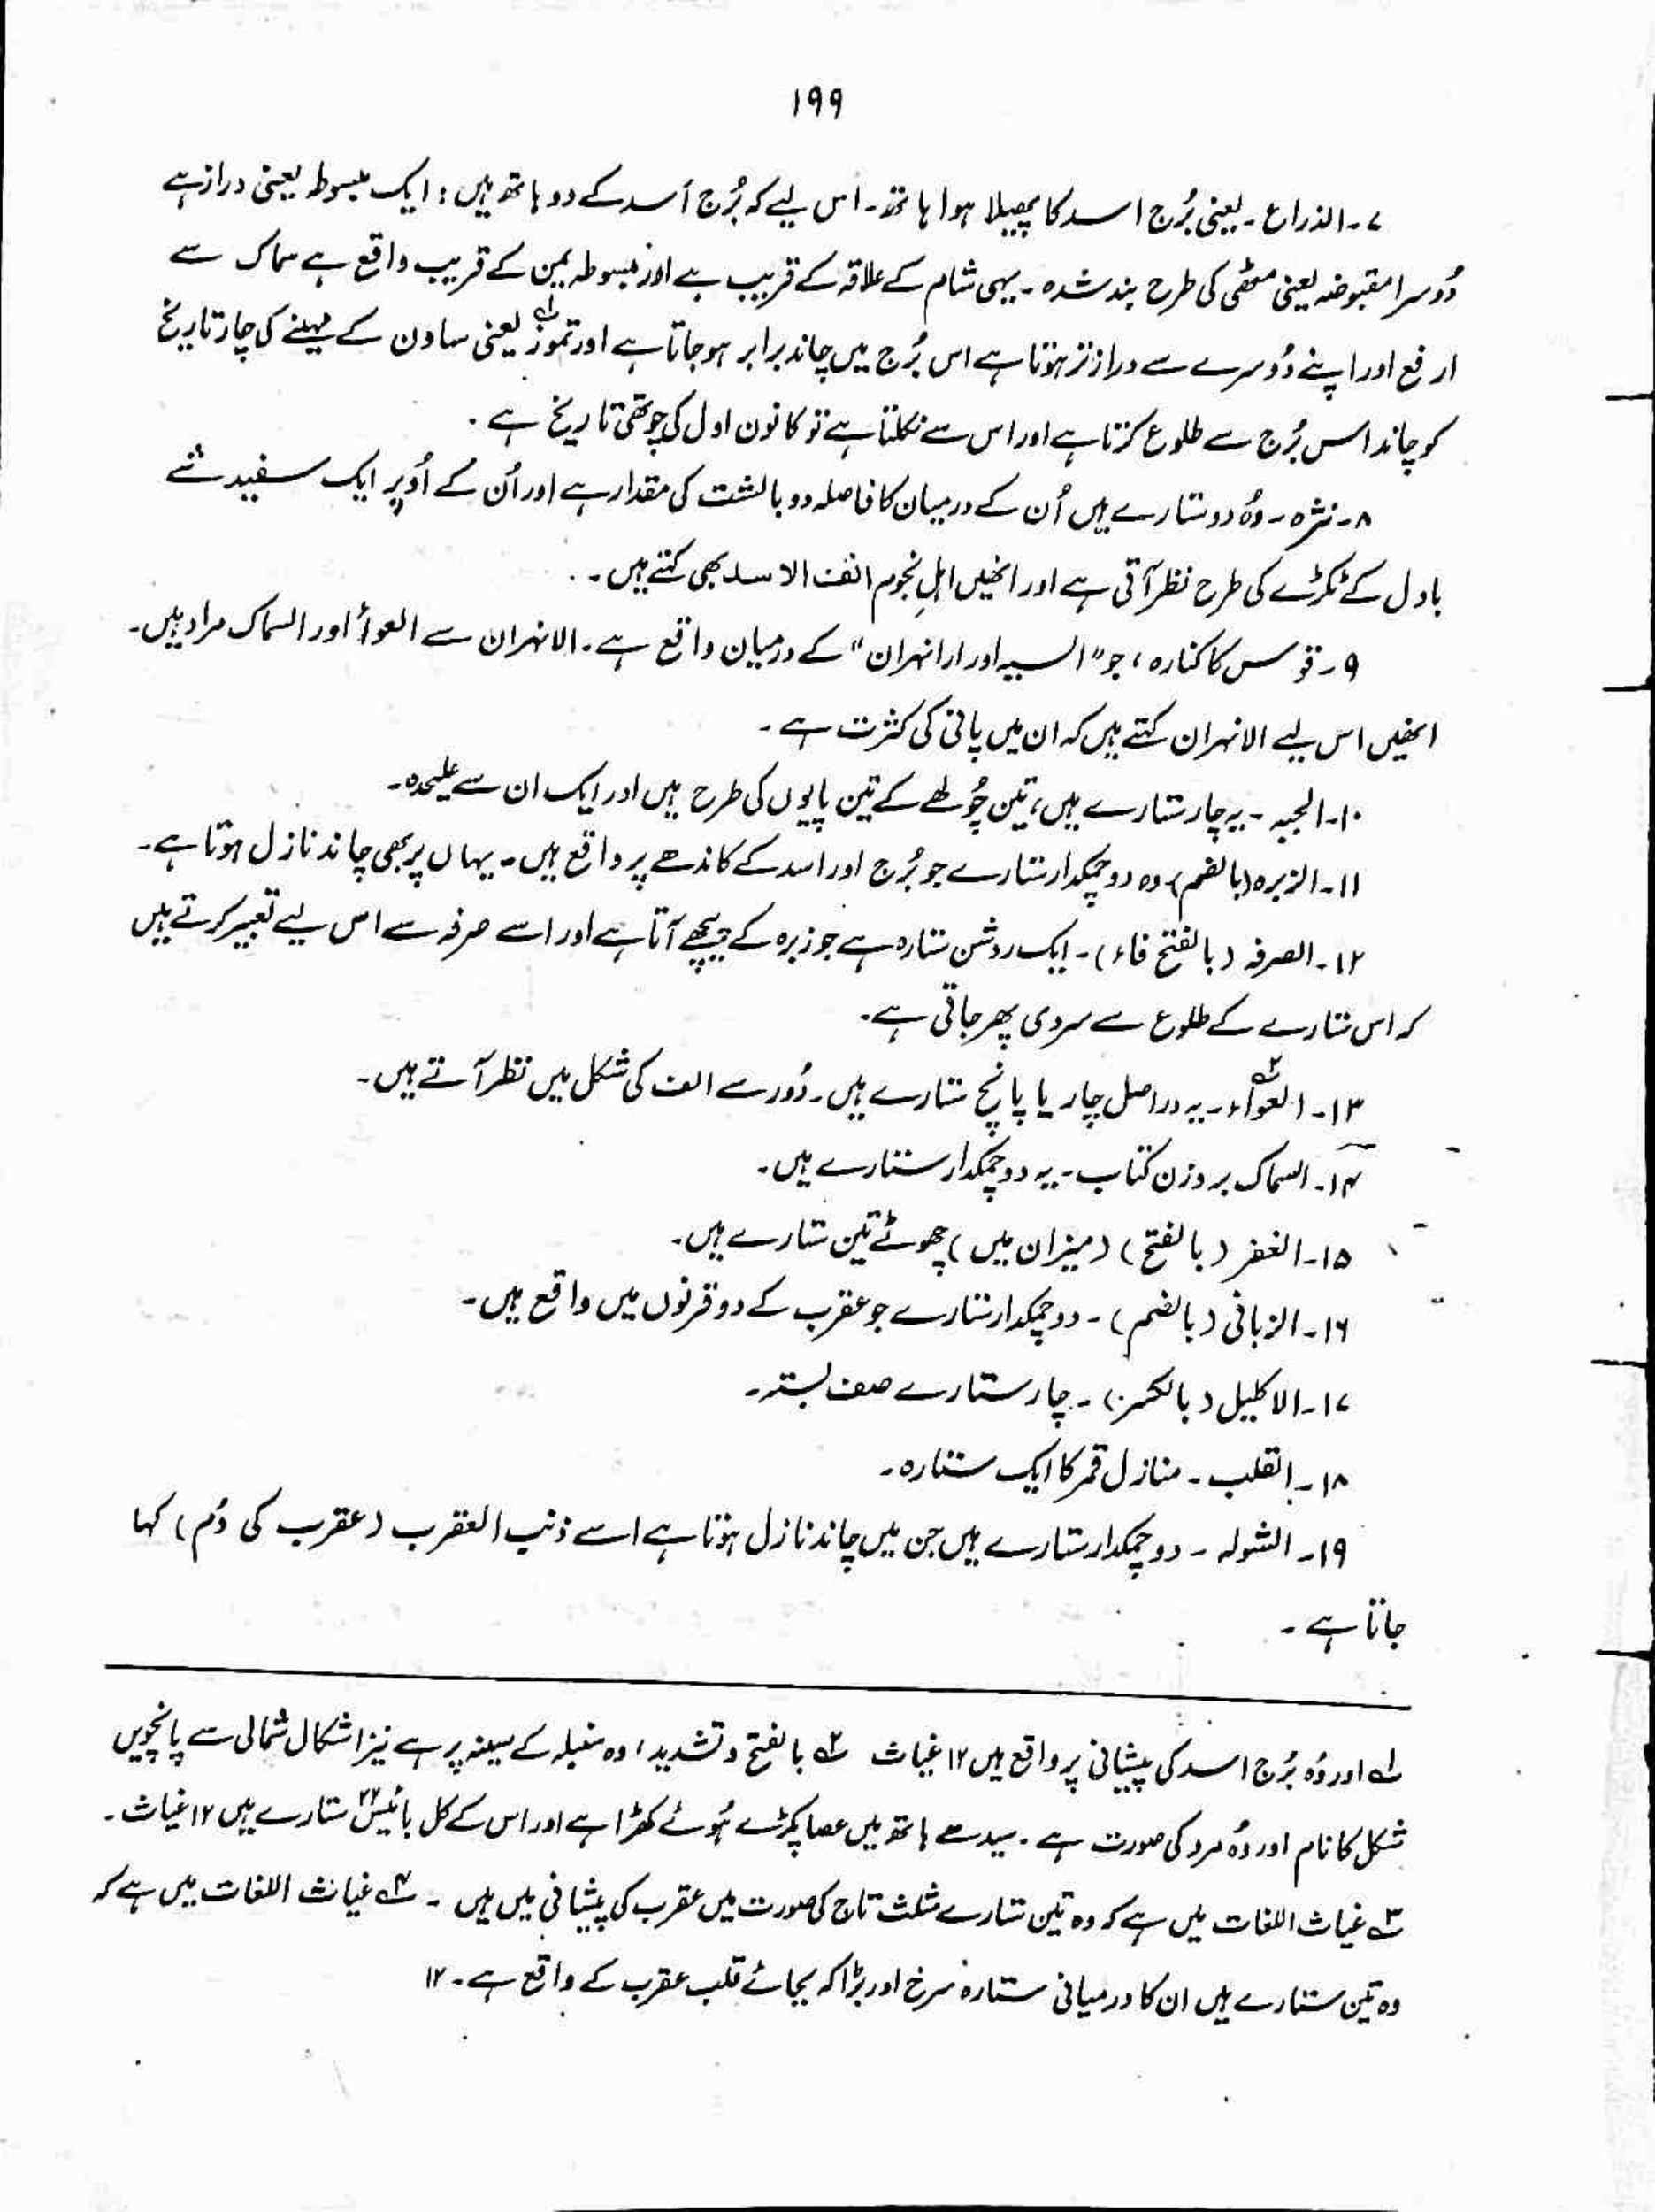 ۱۹۹
۷۔ الذراع۔ یعنی بُرج اسد کا پھیلا ہوا ہاتھ۔ اس لیے کہ بُرج اَسد کے دو ہاتھ ہیں : ایک مبسوطہ یعنی دراز ہے
دُوسرا مقبوضہ یعنی مٹھی کی طرح بند شدہ۔ یہی شام کے علاقہ کے قریب ہے اور مبسوطہ یمن کے قریب واقع ہے سماک سے
ارفع اور اپنے دُوسرے سے دراز تر ہوتا ہے اس بُرج میں چاند برابر ہو جاتا ہے اور تموز یعنی ساون کے مہینے کی چار تاریخ
کو چاند اس بُرج سے طلوع کرتا ہے اور اس سے نکلتا ہے تو کانون اول کی چوتھی تاریخ ہے ۔
۸۔ نثرہ۔ وُہ دو ستارے ہیں اُن کے درمیان کا فاصلہ دو بالشت کی مقدار ہے اور اُن کے اُوپر ایک سفید شے
بادل کے ٹکڑے کی طرح نظر آتی ہے اور انھیں اہلِ نجوم انف الاسد بھی کہتے ہیں ۔
۹۔ قوس کا کنارہ ، جو " السیہ اور ارانہران " کے درمیان واقع ہے۔ الانہران سے العوأ اور السماک مراد ہیں۔
انھیں اس لیے الانہران کہتے ہیں کہ ان میں پانی کی کثرت ہے ۔
۱۰۔ الجبہ ۔ یہ چار ستارے ہیں، تین چُولھے کے تین پایوں کی طرح ہیں اور ایک ان سے علیحدہ۔
۱۱۔ الزبرہ (بالضم) وہ دو چمکدار ستارے جو بُرج اور اسد کے کاندھے پر واقع ہیں۔ یہاں پر بھی چاند نازل ہوتا ہے۔
۱۲۔ الصرفہ (بالفتح فاء)۔ ایک روشن ستارہ ہے جو زبرہ کے پیچھے آتا ہے اور اسے صرفہ سے اس لیے تعبیر کرتے ہیں
کہ اس ستارے کے طلوع سے سردی پھر جاتی ہے۔
۱۳۔ العوآء۲ؔ۔ یہ دراصل چار یا پانچ ستارے ہیں۔ دُور سے الف کی شکل میں نظر آتے ہیں۔
۱۴۔ السماک بروزن کتاب۔ یہ دو چمکدار ستارے ہیں۔
۱۵۔ الغفر (بالفتح) (میزان میں) چھوٹے تین ستارے ہیں۔
۱۶۔ الزبانی (بالضم)۔ دو چمکدار ستارے جو عقرب کے دو قرنوں میں واقع ہیں۔
۱۷۔ الاکلیل (بالکسر)۔ چار ستارے صف بستہ۔
۱۸۔ القلب۔ منازل قمر کا ایک ستارہ۔
۱۹۔ الشولہ ۔ دو چمکدار ستارے ہیں جن میں چاند نازل ہوتا ہے اسے ذنب العقرب (عقرب کی دُم) کہا
جاتا ہے ۔
۱ؔ اور وُہ بُرج اسد کی پیشانی پر واقع ہیں ۱۲ غیاث ۲ؔ بالفتح و تشدید، وہ سنبلہ کے سینہ پر ہے نیز اشکال شمالی سے پانچویں
شکل کا نام اور وُہ مرد کی صورت ہے ۔ سیدھے ہاتھ میں عصا پکڑے ہُوئے کھڑا ہے اور اس کے کل بائیس۲۲ ستارے ہیں ۱۲ غیاث۔
۳ؔ غیاث اللغات میں ہے کہ وہ تین ستارے مثلث تاج کی صورت میں عقرب کی پیشانی میں ہیں ۔ ۴ؔ غیاث اللغات میں ہے کہ
وہ تین ستارے ہیں ان کا درمیانی ستارہ سرخ اور بڑا کہ بجائے قلب عقرب کے واقع ہے۔ ۱۲